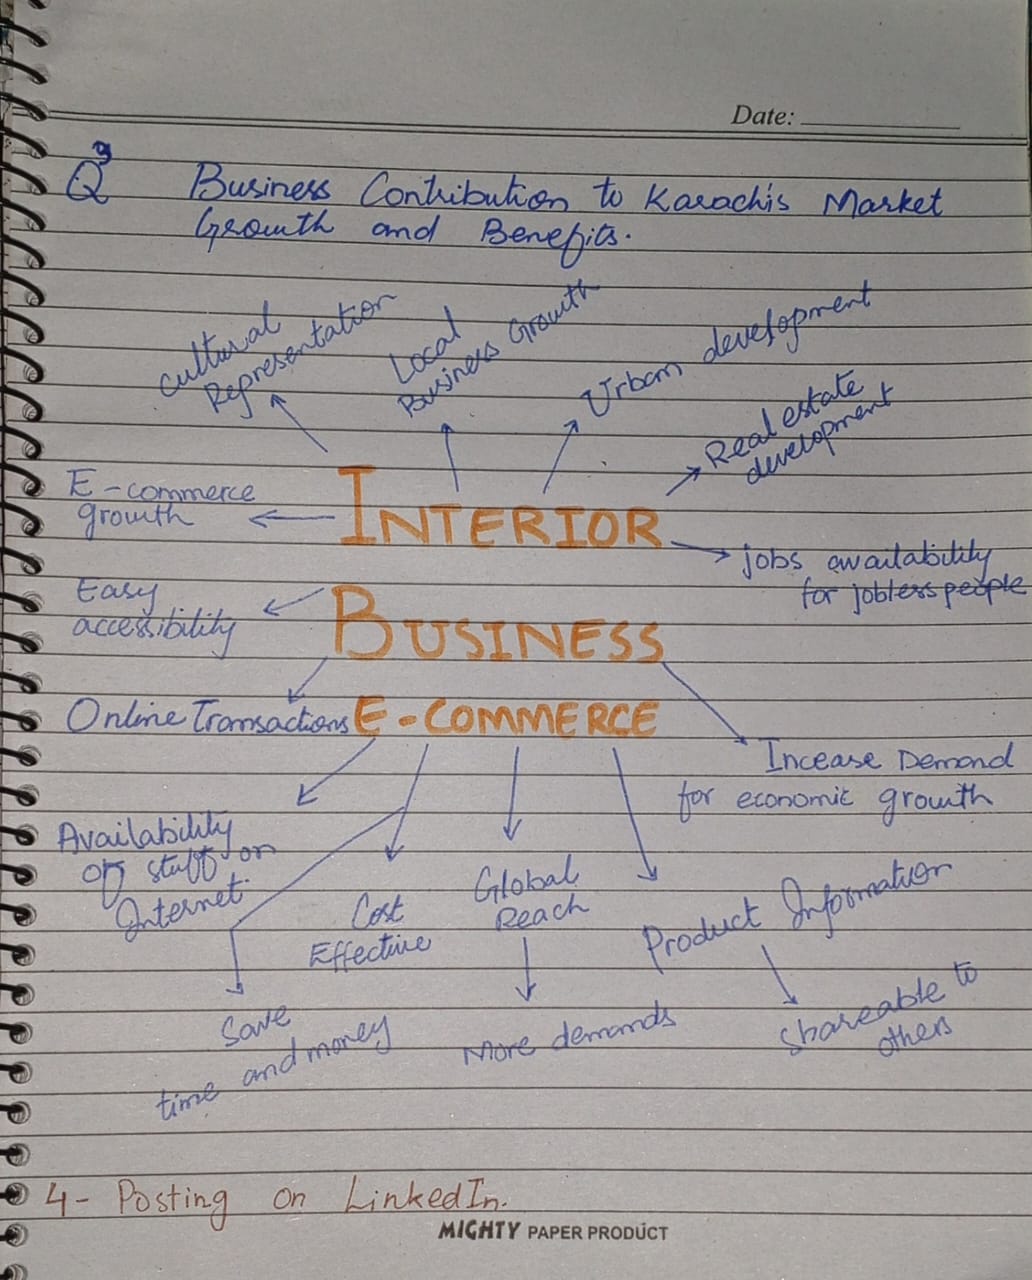 Date:
Q3 Business Contribution to Karachi's Market
Growth and Benefits.
Cultural
Representation
Local
Business Growth
Urban development
Real estate
development
E-commerce
growth
INTERIOR
jobs availability
for jobless people
Easy
accessibility
BUSINESS
Online Transactions
E-COMMERCE
Incease Demand
for economic growth
Availability
of stuff on
Internet.
Cost
Effective
Global
Reach
Product Information
Save
time and money
More demands
Shareable to
others
4- Posting on LinkedIn.
MIGHTY PAPER PRODUCT